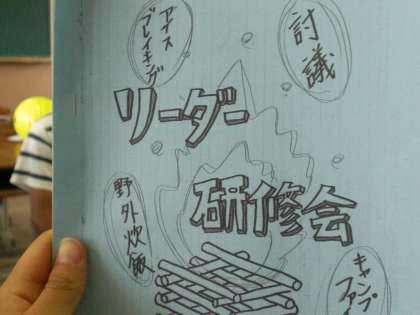 アイス
ブレイキング
討議
リーダー
研修会
野外炊飯
キャンプ
ファイ